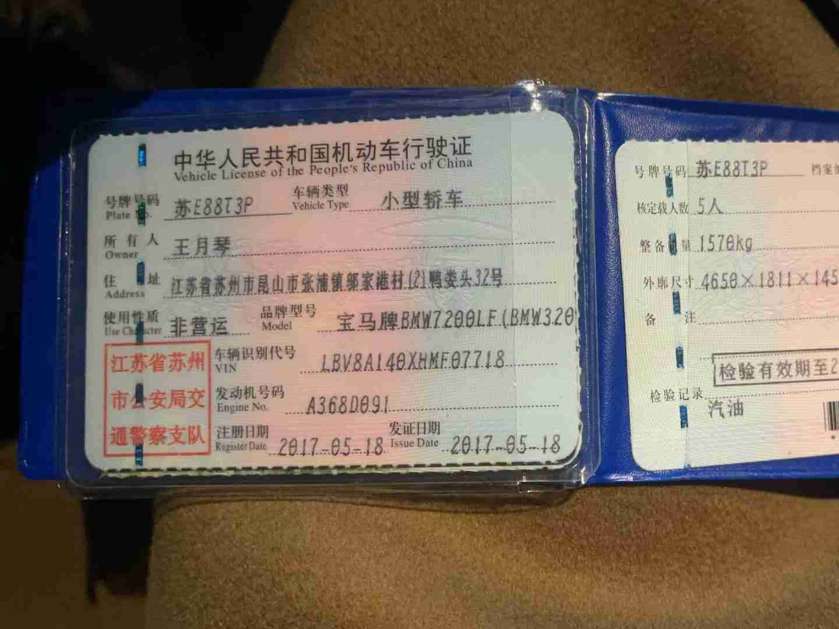 中华人民共和国机动车行驶证
Vehicle License of the People's Republic of China
号牌号码 苏E88T3P 车辆类型 小型轿车
Plate Vehicle Type
所有人 王月琴
Owner
住址 江苏省苏州市昆山市张浦镇邬家港村(2)鸭娄头32号
Address
使用性质 非营运 品牌型号 宝马牌BMW7200LF(BMW320
Use Character Model
江苏省苏州
市公安局交
通警察支队
车辆识别代号 LBV8A140XHMF07718
VIN
发动机号码 A368D091
Engine No.
注册日期 2017-05-18 发证日期 2017-05-18
Register Date Issue Date
号牌号码 苏E88T3P 档案
核定载人数 5人
整备质量 1570kg
外廓尺寸 4650×1811×145
备注
检验有效期至2
检验记录
汽油